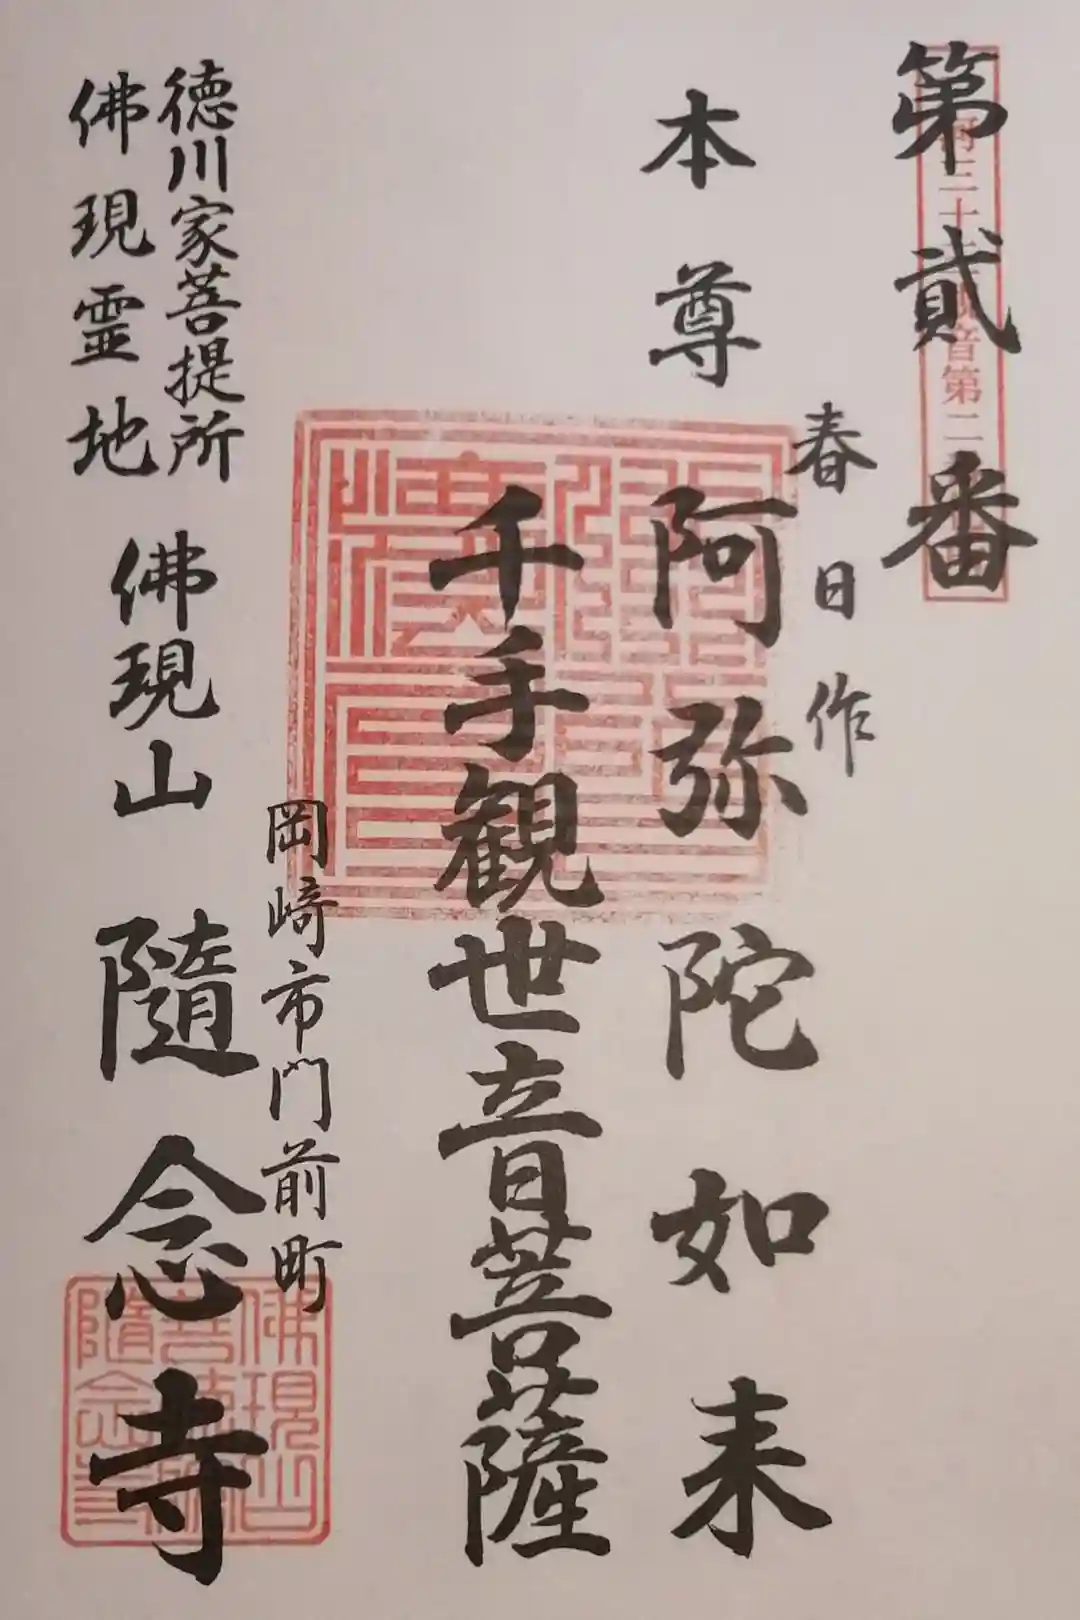 第貳番
三十三観音第二
春日作
本尊
阿弥陀如来
千手観世音菩薩
岡崎市門前町
徳川家菩提所
佛現霊地
佛現山
隨念寺
佛現山
隨念寺